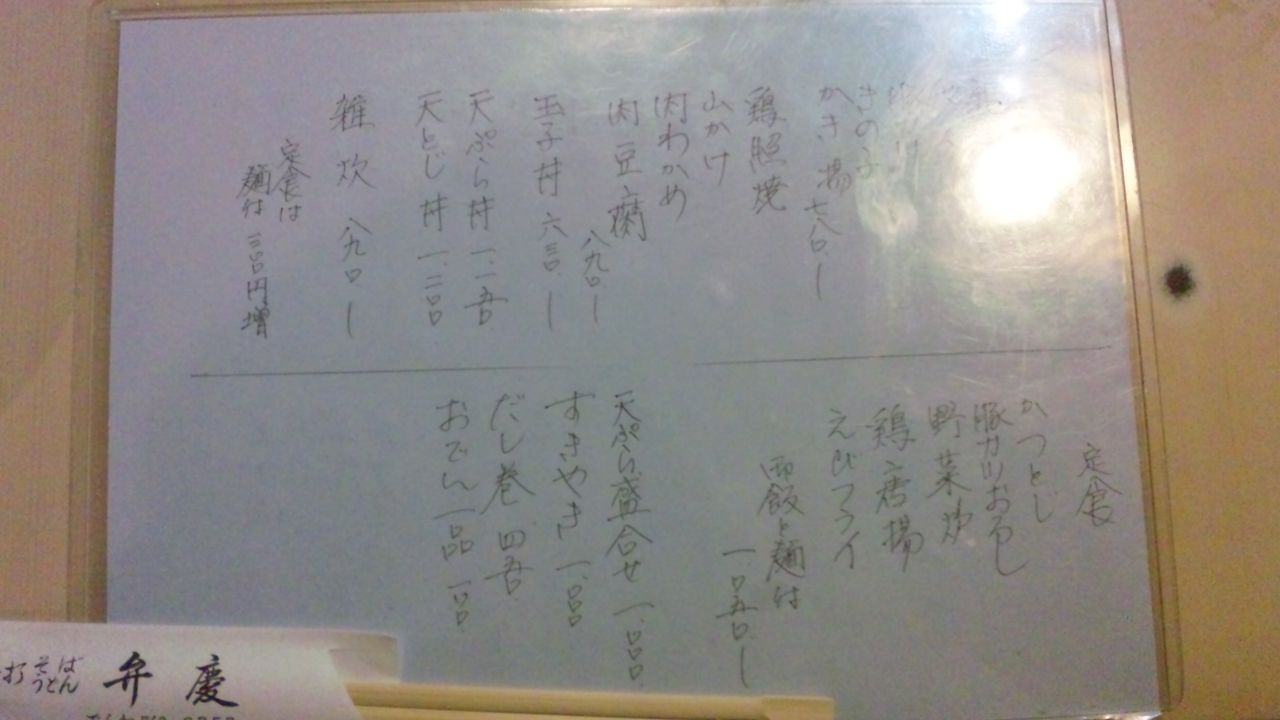 きの子
かき揚 七八〇.ー
鶏照焼
山かけ
肉わかめ
肉豆腐
八九〇.ー
玉子丼 六三〇.ー
天ぷら丼 一.一五〇
天とじ丼 一.二〇〇
雑炊 八九〇ー
定食は
麺付 三〇〇円増
定食
かつとじ
豚カツおろし
野菜炒
鶏唐揚
えびフライ
御飯と麺付
一.〇五〇.ー
天ぷら盛合せ 一.〇〇〇
すきやき 一.〇〇〇
だし巻 四五〇
おでん一品 一〇〇
打そば
うどん
弁慶